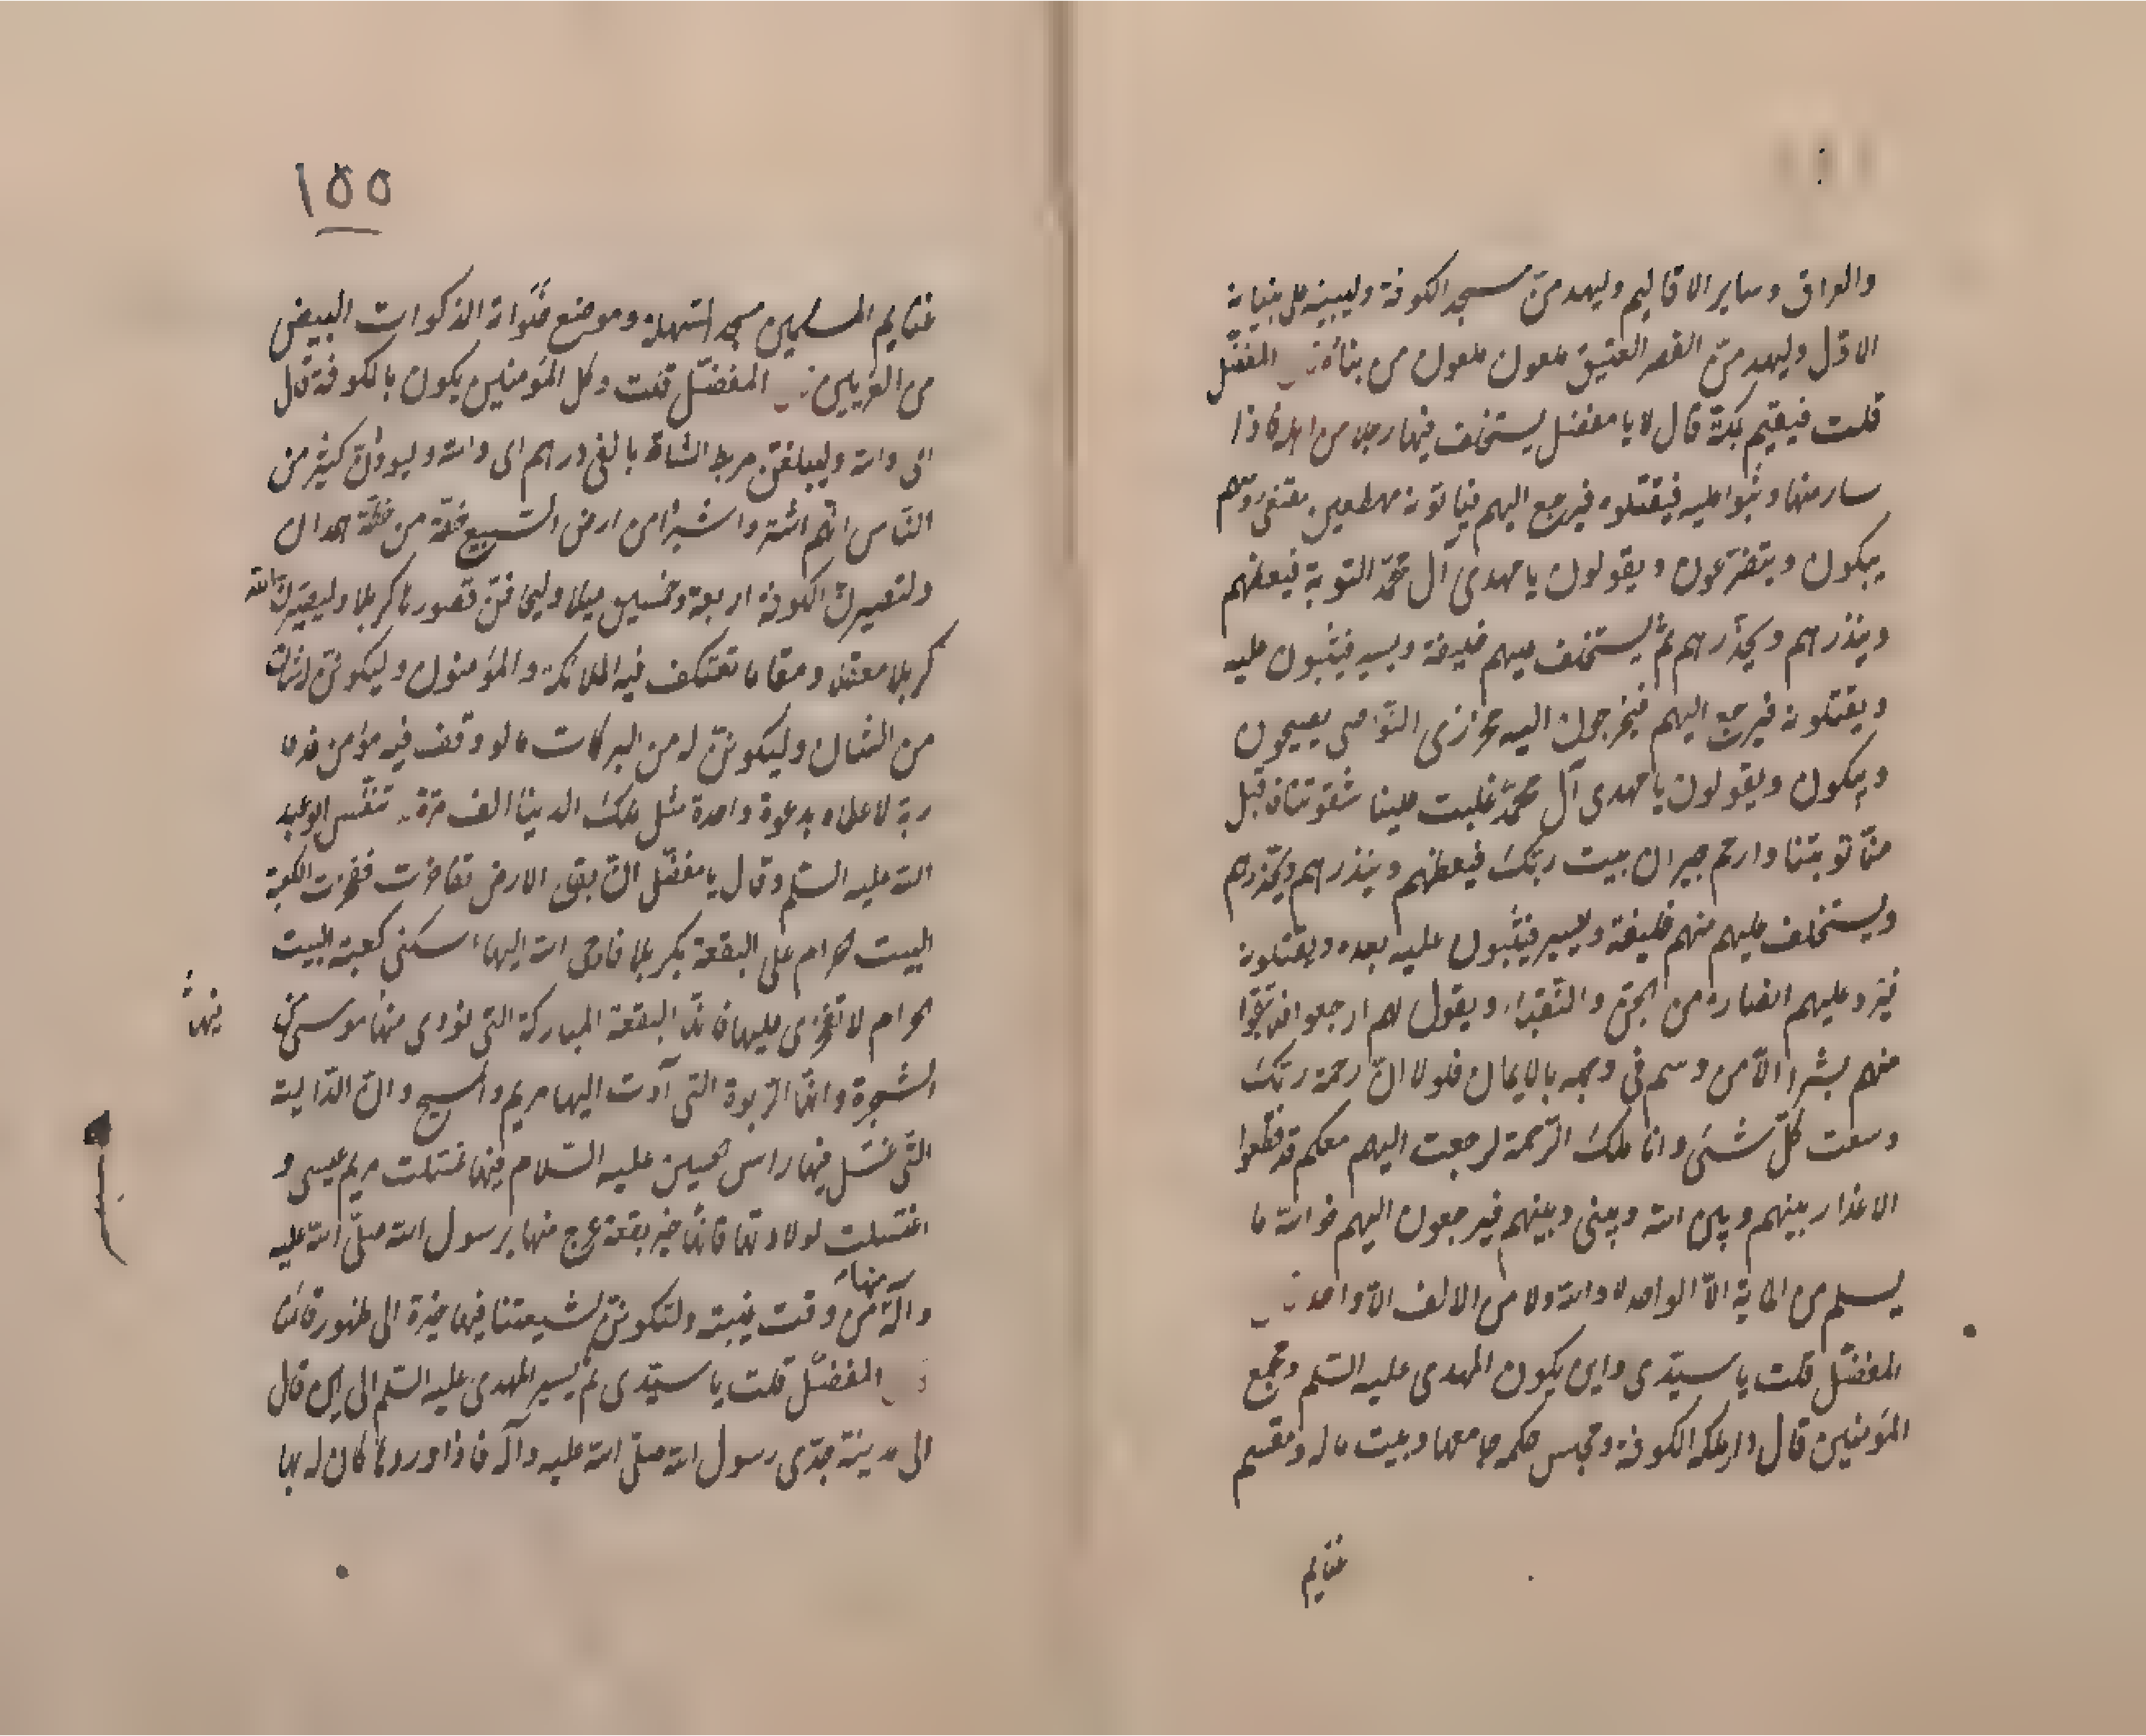 والعراق وساير الاقاليم وليهدمنّ مسجد الكوفة وليبنيه على بنيانه
الاوّل وليهدمنّ القصر العتيق ملعون ملعون من بناه المفضّل
قلت فيقيم بمكة قال لا يا مفضل يستخلف فيها رجلا من اهله فاذا
سار منها وثبوا عليه فيقتلوه فيرجع اليهم فياتونه مهطعين مقنعى رؤسهم
يبكون ويتضرّعون ويقولون يا مهدى آل محمّد التوبة فيعظهم
وينذرهم ويحذّرهم ثمّ يستخلف منهم خليفة ويسير فيثبون عليه
ويقتلونه فيرجع اليهم فيخرجون اليه مجززى النّواصى يصيحون
ويبكون ويقولون يا مهدى آل محمّد غلبت علينا شقوتنا فاقبل
منّا توبتنا وارحم جيران بيت ربّك فيعظهم وينذرهم ويحذّرهم
ويستخلف عليهم منهم خليفة ويسير فيثبون عليه بعده ويقتلونه
فيرد عليهم انصاره من الجنّ والنّقباء ويقول لهم ارجعوا فلا تبقوا
منهم بشرا الّا من وسم فى وجهه بالايمان فلولا انّ رحمة ربّك
وسعت كلّ شىء وانا تلك الرّحمة لرجعت اليهم معكم قد قطعوا
الاعذار بينهم وبين الله وبينى وبينهم فيرجعون اليهم فوالله ما
يسلم من الماية الّا الواحد لا والله ولا من الالف الّا واحد
المفضّل قلت يا سيّدى واين يكون المهدى عليه السّلم ومجمع
المؤمنين قال دار ملكه الكوفة ومجلس حكمه جامعها وبيت ماله ومقسم
غنايم
١٥٥
غنايم المسلمين مسجد السّهلة وموضع خلواته الذكوات البيض
من الغريين المفضّل قلت وكل المؤمنين يكون بالكوفة قال
اى والله وليبلغنّ مربط الشاة بالفى درهم اى والله وليودّنّ كثير من
النّاس انّهم اشتروا شبرا من ارض السّبيع خطّة من خطّة همدان
ولتصيرنّ الكوفة اربعة وخمسين ميلا وليجافنّ قصورها كربلا وليصيّرنّ الله
كربلا معقلا ومقاما تعتكف فيه الملائكة والمؤمنون وليكوننّ لها شان
من الشان وليكوننّ له من البركات ما لو وقف فيه مؤمن فدعا
ربّه لاعطاه بدعوة واحدة مثل ملك الدنيا الف مرّة تنفّس ابو عبد
الله عليه السّلم وقال يا مفضّل انّ بقع الارض تفاخرت ففخرت الكعبة
البيت الحرام على البقعة بكربلا فاوحى الله اليها اسكنى كعبة البيت
الحرام لا تفخرى عليها فانّها البقعة المباركة التى نودى منها موسى من
فيها
الشجرة وانّها الرّبوة التى آوت اليها مريم والمسيح وانّ الدّالية
التّى غسّل فيها راس الحسين عليه السّلام فيها غسلت مريم عيسى و
اغتسلت لولادتها فانّها خير بقعة عرج منها برسول الله صلّى الله عليه
منها
وآله من وقت غيبته ولتكوننّ لشيعتنا فيها خيرة الى ظهور قائمنا
المفضّل قلت يا سيّدى ثم يسير المهدى عليه السّلم الى اين قال
الى مدينة جدّى رسول الله صلّى الله عليه وآله فاذا وردها كان له بها